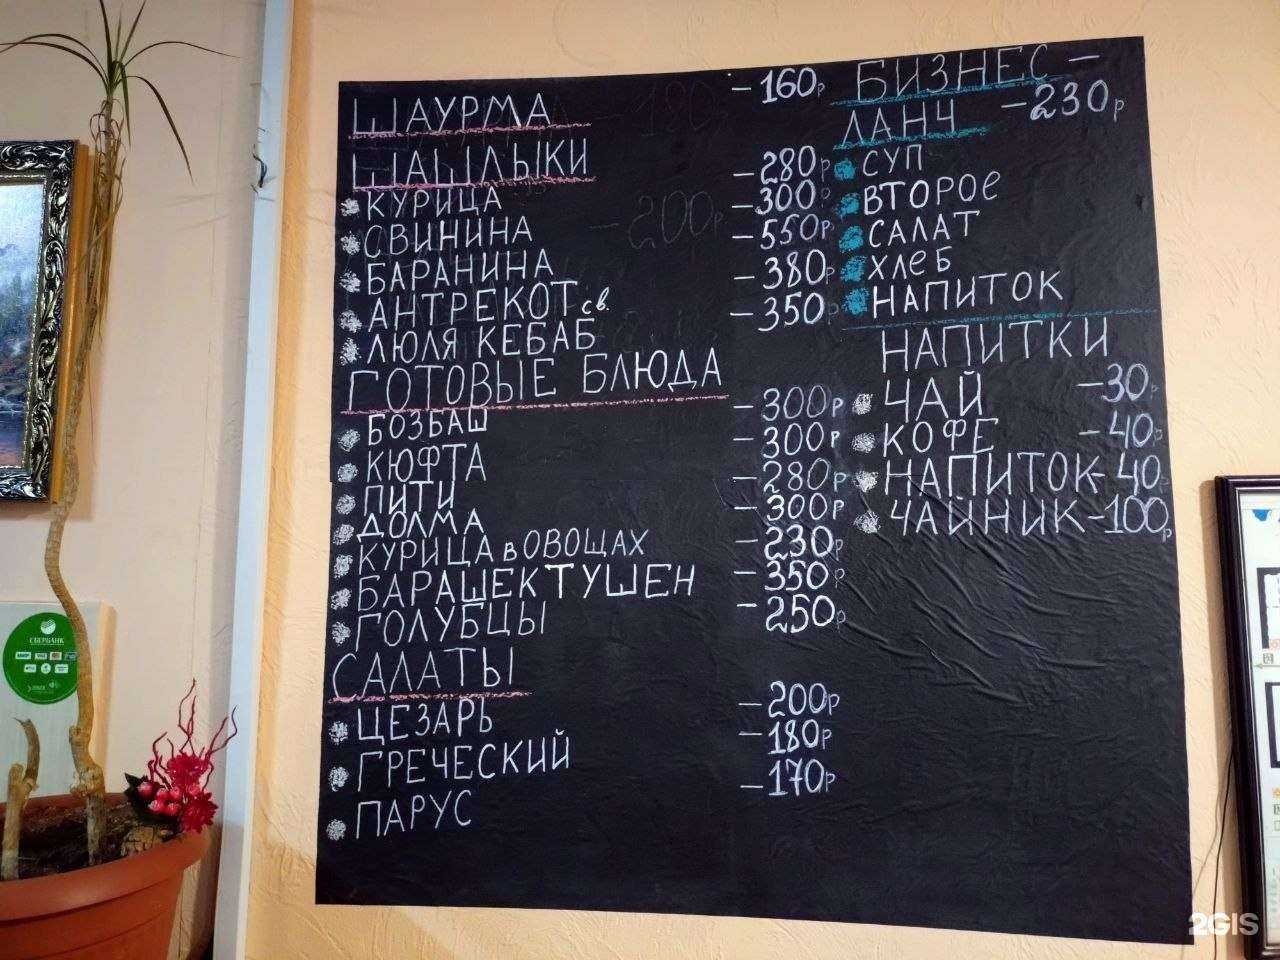 ШАУРМА -160р
ШАШЛЫКИ
КУРИЦА -280р
СВИНИНА -300р
БАРАНИНА -550р
АНТРЕКОТ св. -380р
ЛЮЛЯ КЕБАБ -350р
ГОТОВЫЕ БЛЮДА
БОЗБАШ -300р
КЮФТА -300р
ПИТИ -280р
ДОЛМА -300р
КУРИЦА в ОВОЩАХ -230р
БАРАШЕК ТУШЕН -350р
ГОЛУБЦЫ -250р
САЛАТЫ
ЦЕЗАРЬ -200р
ГРЕЧЕСКИЙ -180р
ПАРУС -170р
БИЗНЕС -
ЛАНЧ -230р
СУП
ВТОРОЕ
САЛАТ
ХЛЕБ
НАПИТОК
НАПИТКИ
ЧАЙ -30р
КОФЕ -40р
НАПИТОК-40р
ЧАЙНИК-100р
СБЕРБАНК
2GIS